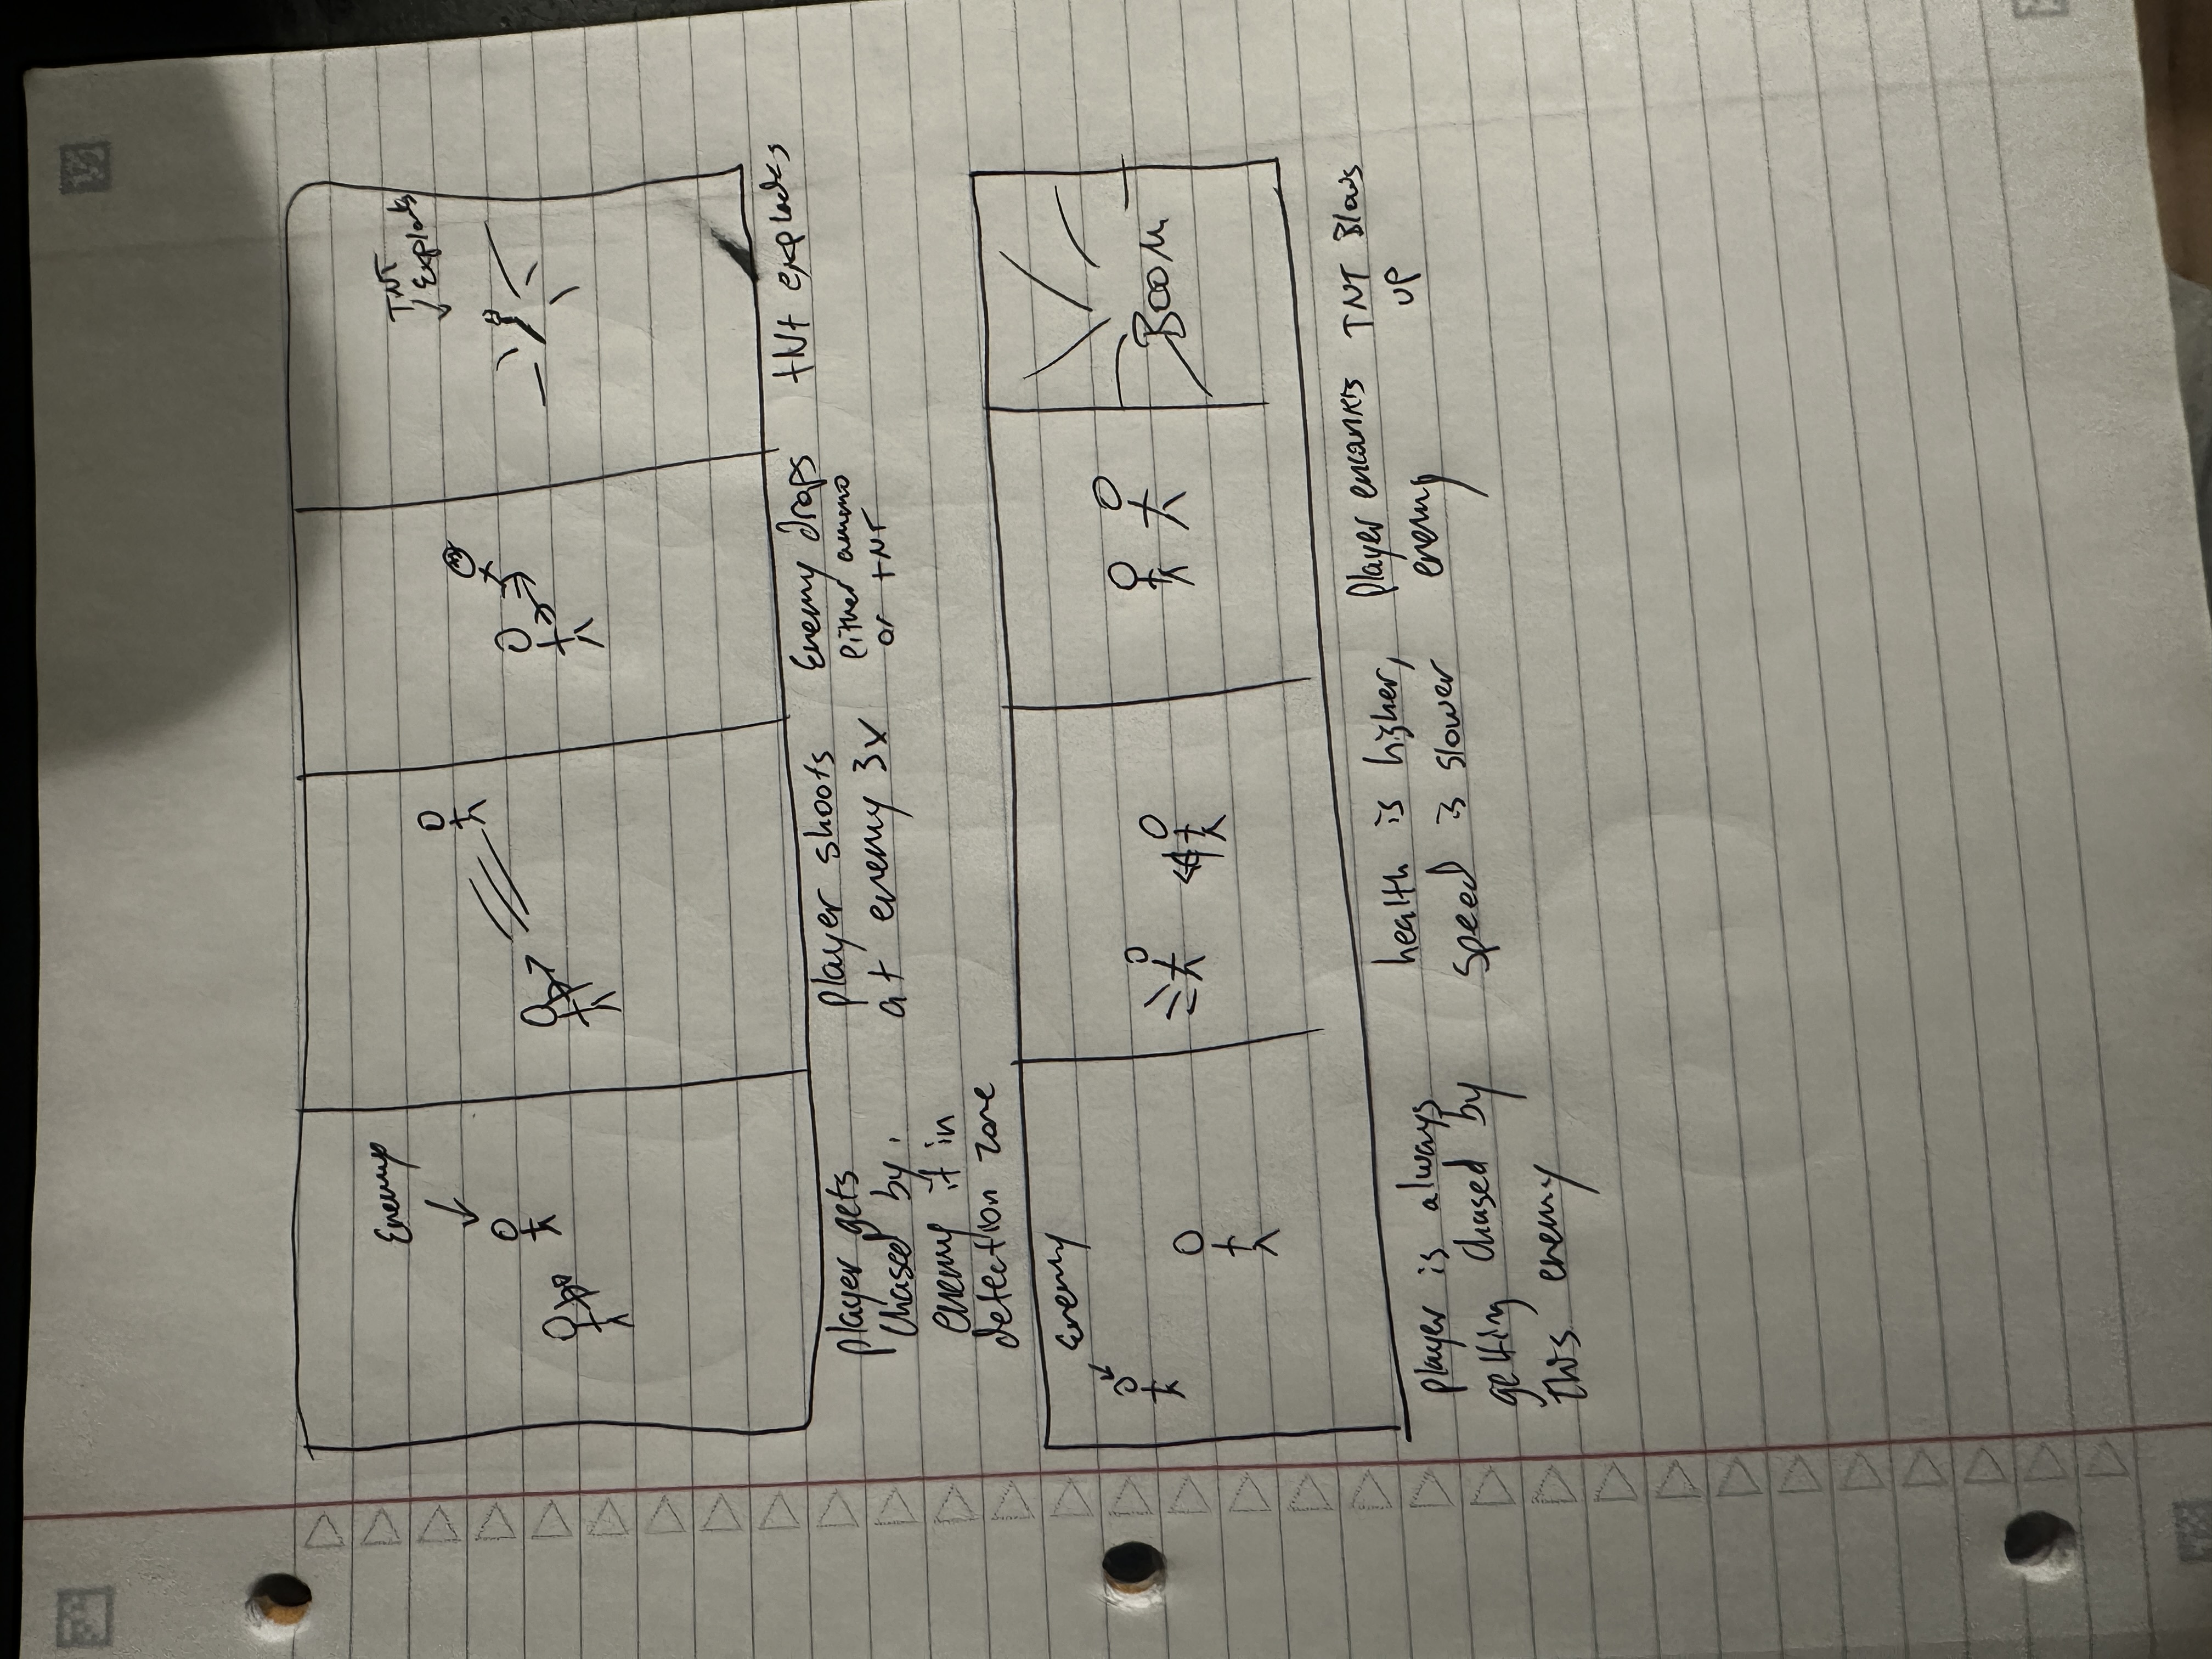 Enemy
TNT
Explodes
player gets
chased by
enemy if in
detection zone
player shoots
at enemy 3x
Enemy drops
either ammo
or tNT
tNt explodes
Enemy
BOOM
player is always
getting chased by
this enemy
health is higher,
speed is slower
Player encounters
enemy
TNT Blows
up